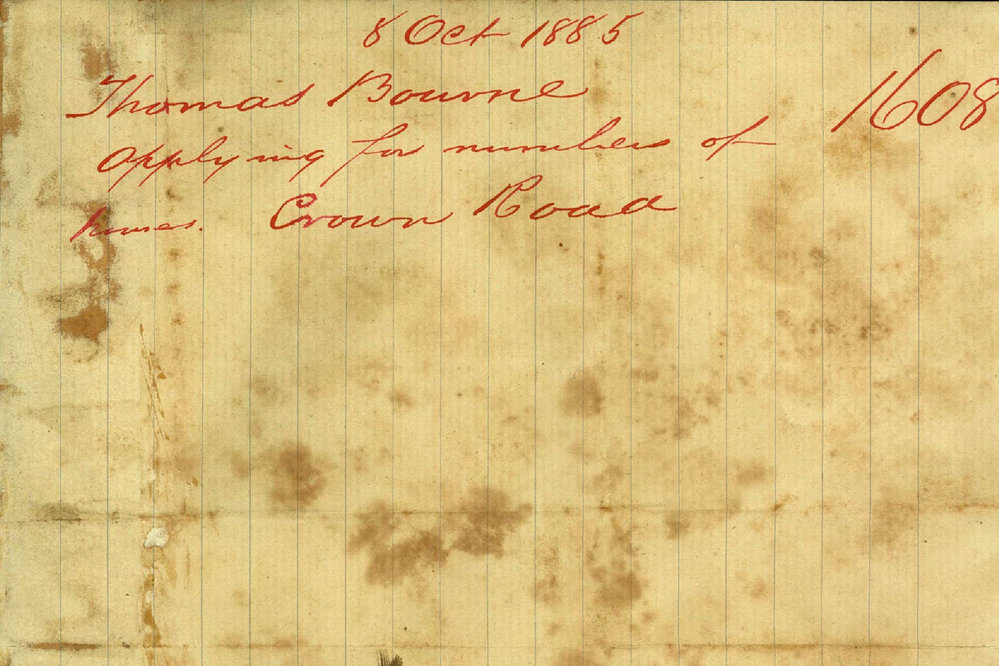 8 Oct 1885
Thomas Bourne
1608
Applying for numbers of
houses. Crown Road